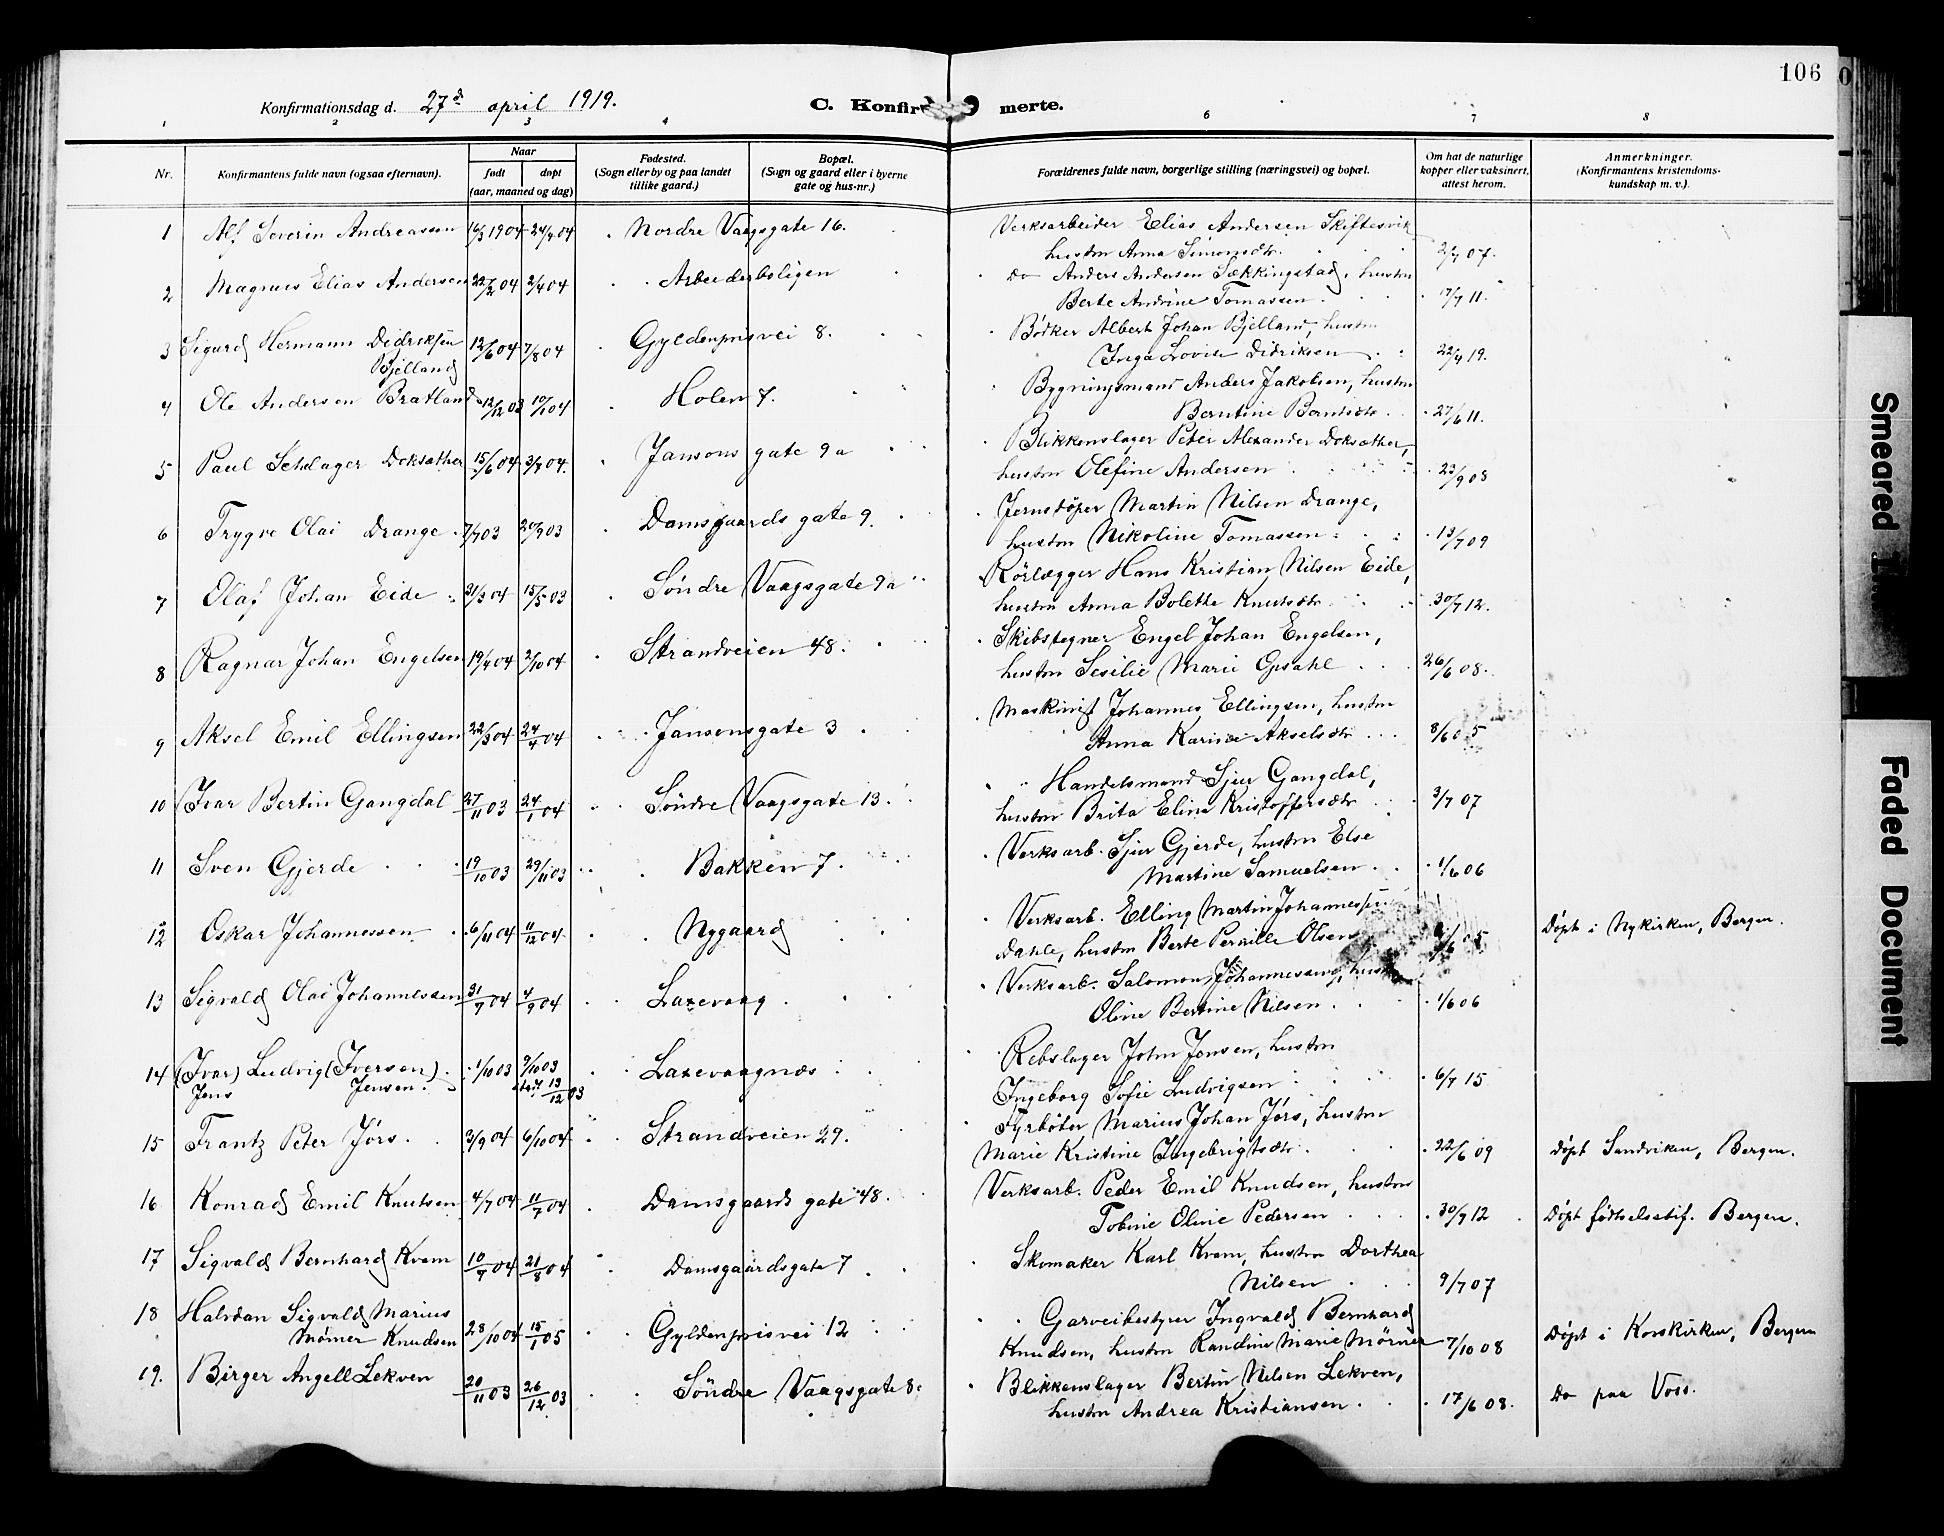 106
Konfirmationsdag d. 27de april 1919.
C. Konfirmerte.
1 2 3 4 6 7 8
Nr.
Konfirmantens fulde navn (ogsaa efternavn).
Naar
født døpt
(aar, maaned og dag)
Fødested.
(Sogn eller by og paa landet
tillike gaard.)
Bopæl.
(Sogn og gaard eller i byerne
gate og hus-nr.)
Forældrenes fulde navn, borgerlige stilling (næringsvei) og bopæl.
Om hat de naturlige
kopper eller vaksinert,
attest herom.
Anmerkninger.
(Konfirmantens kristendoms-
kundskap m. v.).
1 Alf Severin Andreassen 16/3 1904 24/4 04 Nordre Vaagsgate 16. Verksarbeider Elias Andersen Skiftesvik
hustru Anna Simonsdtr. 2/7 07.
2 Magnus Elias Andersen 22/2 04 2/4 04 Arbeiderboligen Do Anders Andersen Sækkingstad, hustru
Berte Andrine Tomassen 17/7 11.
3 Sigurd Hermann Didriksen 12/6 04 7/8 04 Gyldenprisvei 8. Bödker Albert Johan Bjelland, hustru
Bjelland Inga Lovise Didriksen 22/4 19.
4 Ole Andersen Bratland 12/12 03 10/1 04 Holen 7. Bygningsmand Anders Jakobsen, hustru
Berntine Berntsdtr. 27/6 11.
5 Paul Schlager Doksæther 15/6 04 3/7 04. Jansons gate 9a Blikkenslager Peter Alexander Doksæther,
hustru Olefine Andersen 23/9 08
6 Trygve Olai Drange 7/7 03 20/9 03 Damsgaards gate 9. Jernstöper Martin Nilsen Drange,
hustru Nikoline Tomassen 13/7 09
7 Olaf Johan Eide 31/3 04 15/5 03 Söndre Vaagsgate 9a Rörlægger Hans Kristian Nilsen Eide,
hustru Anna Bolette Knutsdtr. 30/7 12.
8 Ragnar Johan Engelsen 19/4 04 2/10 04 Strandveien 48. Skibstegner Engel Johan Engelsen,
hustru Sesilie Marie Opsahl 26/6 08.
9 Aksel Emil Ellingsen 22/3 04 24/4 04 Jansonsgate 3 Maskinist Johannes Ellingsen, hustru
Anna Karine Akselsdtr 8/6 05
10 Ivar Bertin Gangdal 27/11 03 24/1 04 Söndre Vaagsgate 13. Handelsmand Sjur Gangdal,
hustru Brita Elina Kristoffersdtr 3/7 07
11 Sven Gjerde 19/10 03 29/11 03 Bakken 7. Verksarb. Sjur Gjerde, hustru Else
Martine Samuelsen 1/6 06
12 Oskar Johannessen 6/11 04 11/12 04 Nygaard Verksarb. Elling Martin Johannessen
Dahle, hustru Berte Pernille Olsen /6 05 Døpt i Nykirken, Bergen.
13 Sigvald Olai Johannessen 31/7 04 4/9 04 Laxevaag Verksarb. Salomon Johannessen, hustru
Oline Bertine Nilsen 1/6 06
14 (Ivar) Ludvig (Iversen) 1/10 03 7/10 03 Laxevaagnæs Rebslager John Jensen, hustru
Jens Jensen. stadf. 13/12 03 Ingeborg Sofie Ludvigsen 6/7 15
15 Frantz Peter Jörs 3/9 04 6/10 04 Strandveien 29. Fyrböter Marius Johan Jörs, hustru
Marie Kristine Ingebrigtsdtr 22/6 09 Døpt Sandviken, Bergen.
16 Konrad Emil Knutsen 4/7 04 11/7 04 Damsgaards gate 48. Verksarb. Peder Emil Knudsen, hustru
Tobine Oline Pedersen 30/7 12 Døpt fødselsstif. Bergen.
17 Sigvald Bernhard Kvam 10/7 04 21/8 04 Damsgaardsgate 7 Skomaker Karl Kvam, hustru Dorthea
Nilsen 9/7 07
18 Halvdan Sigvald Marius Garveibestyrer Ingvald Bernhard
Mörner Knudsen 28/10 04 15/1 05 Gyldenprisvei 12 Knudsen, hustru Randine Marie Mörner 7/10 08 Døpt i Korskirken, Bergen
19. Birger Angell Lekven 20/11 03 26/12 03 Söndre Vaagsgate 8c Blikkenslager Bertin Nilsen Lekven,
hustru Andrea Kristiansen 17/6 08. Do paa Voss.
Smeared
Faded Document